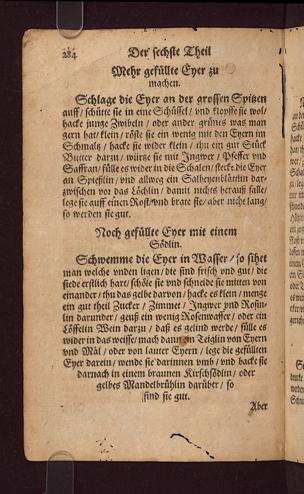 284 Der sechste Theil
Mehr gefüllte Eyer zu
machen.
Schlage die Eyer an der grossen Spitzen
auff / schütte sie in eine Schüssel / vnd klopffe sie wol /
hacke junge Zwibeln / oder ander grünes was man
gern hat / klein / röste sie ein wenig mit den Eyern im
Schmaltz / hacke sie wider klein / thu ein gut Stück
Butter darzu / würtze sie mit Jngwer / Pfeffer vnd
Saffran / fülle es wider in die Schalen / stecke die Eyer
an Spießlin / vnd allweg ein Salbeyenblätlin dar-
zwischen vor das Löchlin / damit nichts herauß falle /
lege sie auff einen Rost / vnd brate sie / aber nicht lang /
so werden sie gut.
Noch gefüllte Eyer mit einem
Södlin.
Schwemme die Eyer in Wasser / so sihet
man welche vnden ligen / die sind frisch vnd gut / die
siede erstlich hart / schöle sie vnd schneide sie mitten von
einander / thu das gelbe darvon / hacke es klein / menge
ein gut theil Zucker / Zimmet / Jngwer vnd Rosin-
lin darunder / geuß ein wenig Rosenwasser / oder ein
Löffelin Wein darzu / daß es gelind werde / fülle es
wider in das weisse / mach dann ein Teiglin von Eyern
vnd Mäl / oder von lauter Eyern / lege die gefüllten
Eyer darein / wende sie darinnen vmb / vnd backe sie
darnach in einem braunen Kirschsödlin / oder
gelbes Mandelbrühlin darüber / so
sind sie gut.
Aber